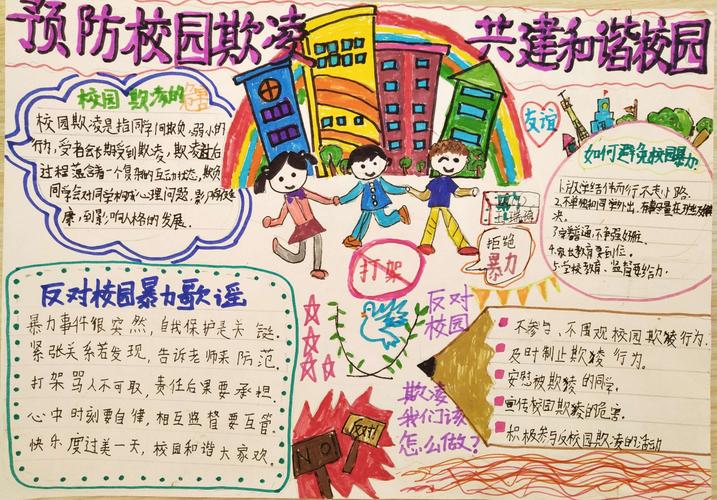 预防校园欺凌
共建和谐校园
校园欺凌的危害
校园欺凌是指同学间欺负弱小的
行为,受者会长期受到欺凌,欺凌
过程蕴含着一个复杂的互动状态,欺负
同学会对同学构成心理问题,影响健
康,到影响人格的发展。
友谊
如何避免校园暴力
1.放学结伴而行,不走小路.
2.不单独和同学外出,有
决.
4.家长教育要到位.
5.学校教育,监督要给力.
拒绝
暴力
打架
反对校园暴力歌谣
暴力事件很突然,自我保护是关键。
紧张关系若发现,告诉老师来防范。
打架骂人不可取,责任后果要承担。
心中时刻要自律,相互监督要互管。
快乐度过美一天,校园和谐大家欢。
反对
校园
欺凌
我们该
怎么做?
不参与,不围观校园欺凌行为.
及时制止欺凌行为。
安慰被欺凌的同学。
宣传校园欺凌的危害.
积极参与反校园欺凌的活动
NO
反对!